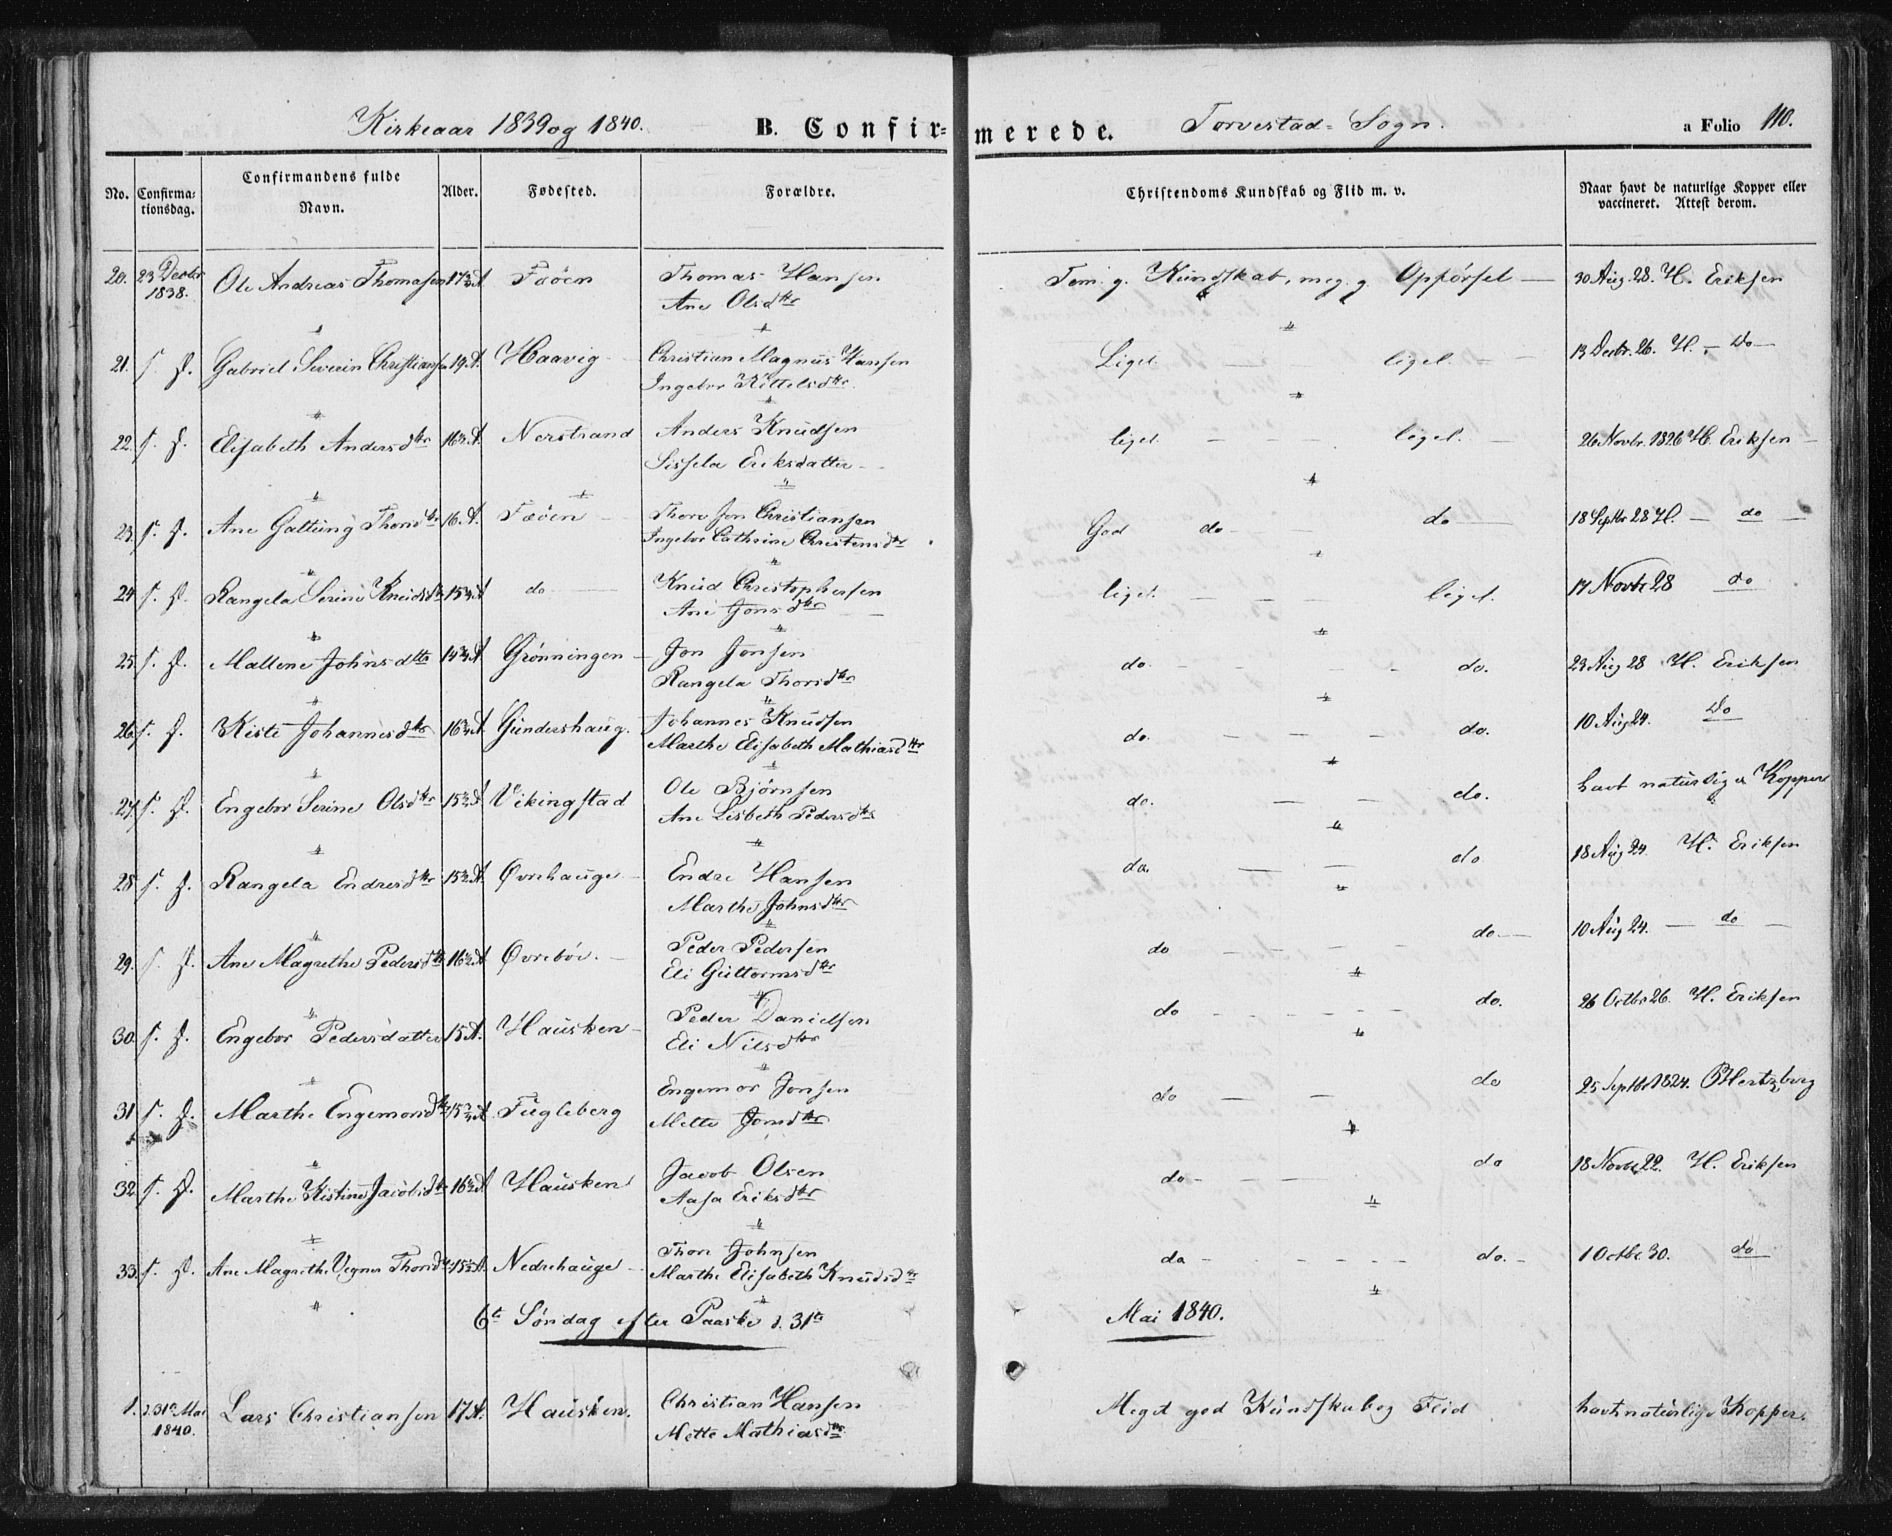 Kirkeaar 1839 og 1840. B. Confirmerede. Torvestad Sogn. a Folio 110.
No. Confirmationsdag. Confirmandens fulde Navn. Alder. Fødested. Forældre. Christendoms Kundskab og Flid m. v. Naar havt de naturlige Kopper eller vaccineret. Attest derom.
20. 23 Decbr 1838. Ole Andreas Thomasen 17 A Fæöen Thomas Hansen Tem. g. Kundskab, meg. g. Opförsel — 30 Aug. 28. H. Eriksen
Ane Olsdtr
21. s. D. Gabriel Severin Christiansen 19 A. Haavig Christian Magnus Hansen Liget — liget — 13 Decbr. 26. H. — Do —
Ingebor Kittelsdtr
22. s. D. Elisabeth Andersdtr 16 A. Nerstrand Anders Knudsen liget — — liget. — 26 Novbr. 1826 H. Eriksen —
Sissela Eriksdatter —
23. s. D. Ane Galtung Thorsdtr 16. A. Fæöen — Thore Jon Christiansen God do — — do — 18 Septbr 28 H. — do —
Ingebor Cathrine Christensdtr
24. s. D. Rangela Serine Knudsdtr 15 A do — Knud Christophersen liget. — — liget. 17 Novbr 28 do
Ane Jonsdtr —
25. s. D. Mallene Johnsdtr 14 3/4 A Grönningen — Jon Jonsen do. — — — do. 23 Aug 28 H. Eriksen
Rangela Thorsdtr
26. s. D. Kisti Johannesdtr 16 A Gundershaug. Johannes Knudsen do. — — — do. 10 Aug 24. Do
Marthe Elisabeth Mathiasdtr
27. s. D. Engebor Serine Olsdtr 15 A Vikingstad Ole Björnsen do. — — do. havt naturlige Kopper
Ane Lisbeth Pedersdtr
28. s. D. Rangela Endresdtr 15 A. Øvrehauge — Endre Hansen do. — — do 18 Aug 24. H. Eriksen
Marthe Johnsdtr
29. s. D. Ane Magrethe Pedersdtr 16 A Øvreböe. — Peder Pedersen do — — — do. — 10 Aug 24. — do —
Eli Guttormsdtr
30. s. D. Engebor Pedersdatter 15 A. Hausken — Peder Danielsen do — — — — do. 26 Octbr 26. H. Eriksen
Eli Nilsdtr
31 s. D. Marthe Engemorsdtr 15 A Fugleberg Engemor Jonsen do — — do 25 Septbr 1824. Hertzberg
Mette Jonsdtr
32. s. D. Marthe Kistine Jacobsdtr 16 A Hausken Jacob Olsen do — do 18 Novbr 22. H. Eriksen
Aasa Eriksdtr
33. s. D. Ane Magrethe Vegner Thorsdtr 15 A. Nedrehauge — Thore Johnsen do — — — — do. — 1 Octbr 30. do
Marthe Elisabeth Knudsdtr
6te Söndag efter Paaske d. 31te Mai 1840.
1. d. 31te Mai 1840. Lars Christiansen 17 A. Hausken. Christian Hansen Meget god Kundskab og Flid havt naturlige Kopper.
Mette Mathiasdtr